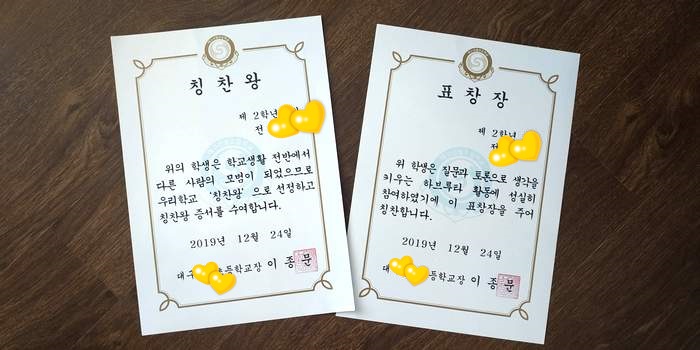 칭찬왕
제 2학년
전
위의 학생은 학교생활 전반에서
다른 사람의 모범이 되었으므로
우리학교 '칭찬왕' 으로 선정하고
칭찬왕 증서를 수여합니다.
2019년 12월 24일
대구 등학교장 이종문
표창장
제 2학년
전
위 학생은 질문과 토론으로 생각을
키우는 하브루타 활동에 성실히
참여하였기에 이 표창장을 주어
칭찬합니다.
2019년 12월 24일
대 등학교장 이종문